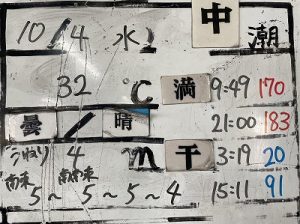 10/4 水 中潮
32 ℃ 満 9:49 170
曇/晴 21:00 183
うねり 4 m 干 3:19 20
南東 南南東
5~5~5~4 15:11 91